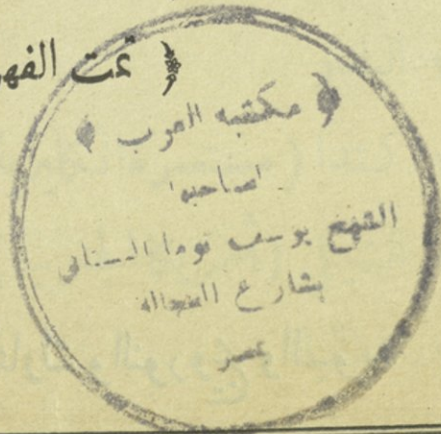 تمت الفهر
مكتبه العرب
لصاحبها
الشيخ يوسف توما البستاني
بشارع الفجاله
بمصر